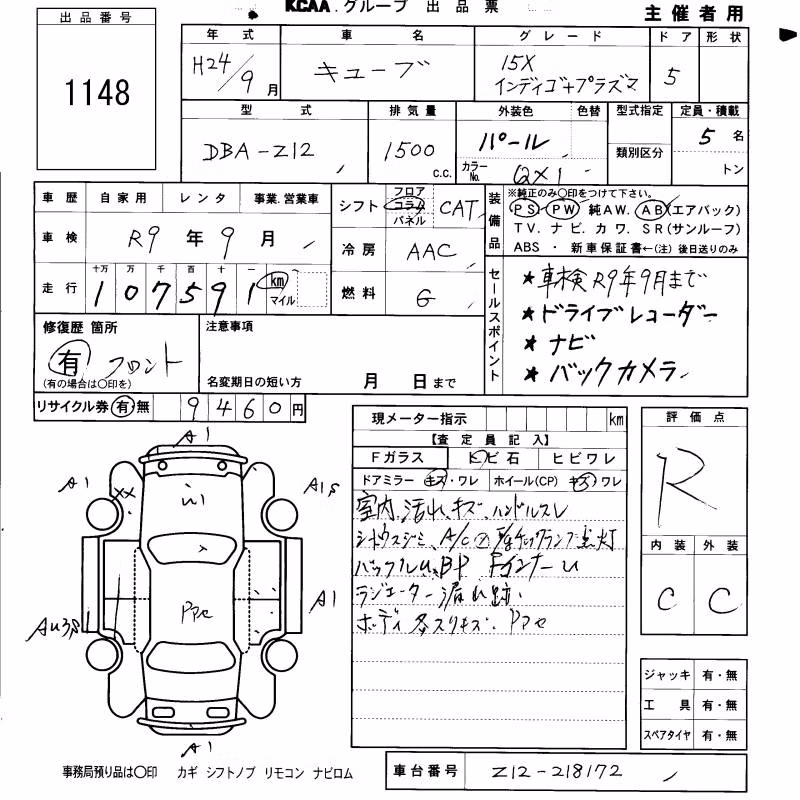 KCAA.グループ 出品票
主催者用
出品番号
1148
年式 車名 グレード ドア 形状
H24/9月 キューブ 15X インディゴ+プラズマ 5
型式 排気量 外装色 色替 型式指定 定員・積載
DBA-Z12 1500 c.c. パール 5名
カラーNo. QX1 類別区分 トン
車歴 自家用 レンタ 事業.営業車
車検 R9年9月
走行 十万 万 千 百 十 一
107591 km マイル
シフト フロア コラム パネル CAT
冷房 AAC
燃料 G
装備品
※純正のみ○印をつけて下さい。
PS・PW 純AW. AB(エアバック)
TV. ナビ. カワ. SR(サンルーフ)
ABS ・ 新車保証書←(注)後日送りのみ
セールスポイント
★車検R9年9月まで
★ドライブレコーダー
★ナビ
★バックカメラ
修復歴 箇所
有 フロント
(有の場合は○印を)
注意事項
名変期日の短い方 月 日まで
リサイクル券 有・無 9460円
現メーター指示 km
【査定員記入】
Fガラス トビ石 ヒビワレ
ドアミラー キズ・ワレ ホイール(CP) キズ ワレ
室内 汚れ キズ、ハンドルスレ
A/C
バックパネルU、BP FインナーU
ラジエーター漏れ跡.
ボディ各スリキズ. PPケ
評価点
R
内装 外装
C C
ジャッキ 有・無
工具 有・無
スペアタイヤ 有・無
A1
A1
XX
A1S
A1
AU3S
PPケ
A1
事務局預り品は○印 カギ シフトノブ リモコン ナビロム
車台番号 Z12-218172